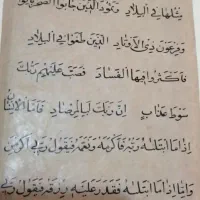 مِثْلُهَا فِي الْبِلَادِ وَثَمُودَ الَّذِينَ جَابُوا الصَّخْرَ بِالْوَادِ
وَفِرْعَوْنَ ذِي الْأَوْتَادِ الَّذِينَ طَغَوْا فِي الْبِلَادِ
فَأَكْثَرُوا فِيهَا الْفَسَادَ فَصَبَّ عَلَيْهِمْ رَبُّكَ
سَوْطَ عَذَابٍ إِنَّ رَبَّكَ لَبِالْمِرْصَادِ فَأَمَّا الْإِنْسَانُ
إِذَا مَا ابْتَلَاهُ رَبُّهُ فَأَكْرَمَهُ وَنَعَّمَهُ فَيَقُولُ رَبِّي أَكْرَمَنِ
وَأَمَّا إِذَا مَا ابْتَلَاهُ فَقَدَرَ عَلَيْهِ رِزْقَهُ فَيَقُولُ رَبِّي